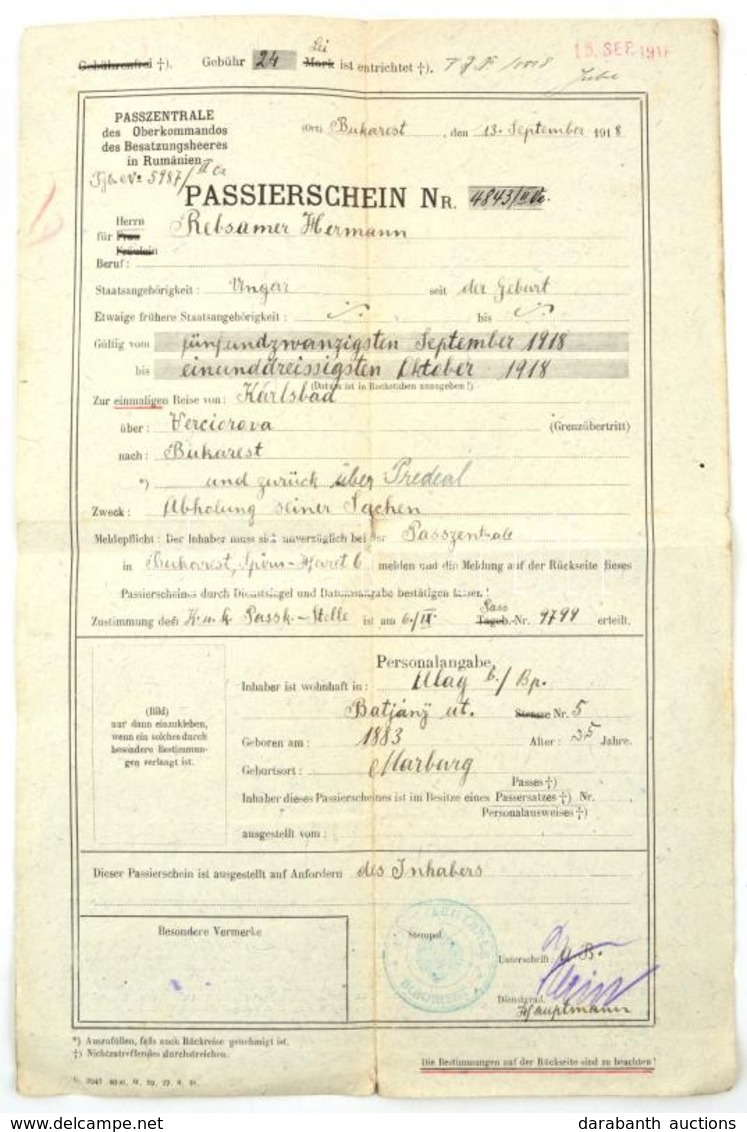 Gebührenfrei †). Gebühr 24 Lei Mark ist entrichtet †).
15. SEP. 191
PASSZENTRALE
des Oberkommandos
des Besatzungsheeres
in Rumänien
(Ort) Bukarest, den 13. September 1918
5987/
PASSIERSCHEIN NR. 4843/
Herrn
für Frau Rebsamer Hermann
Fräulein
Beruf:
Staatsangehörigkeit: Ungar seit der Geburt
Etwaige frühere Staatsangehörigkeit: bis
Gültig vom fünfundzwanzigsten September 1918
bis einunddreissigsten Oktober 1918
(Datum ist in Buchstaben anzugeben!)
Zur einmaligen Reise von: Karlsbad
über: Verciorova (Grenzübertritt)
nach: Bukarest
*) und zurück über Predeal
Zweck: Abholung seiner Sachen
Meldepflicht: Der Inhaber muss sich unverzüglich bei der Passzentrale
in Bukarest, Spiru-Haret 6 melden und die Meldung auf der Rückseite dieses
Passierscheines durch Dienstsiegel und Datumsangabe bestätigen lassen!
Pass
Zustimmung der K.u.k. Passk.-Stelle ist am 6./IX. Tageb.-Nr. 9794 erteilt.
Personalangabe
Inhaber ist wohnhaft in: Bp.
Batjány ut. Strasse Nr. 5
(Bild)
nur dann einzukleben,
wenn ein solches durch
besondere Bestimmun-
gen verlangt ist.
Geboren am: 1883 Alter: 35 Jahre.
Geburtsort: Marburg
Passes †)
Inhaber dieses Passierscheines ist im Besitze eines Passersatzes †) Nr.
Personalausweises †)
ausgestellt vom:
Dieser Passierschein ist ausgestellt auf Anfordern des Inhabers
Besondere Vermerke
Stempel
Unterschrift:
Dienstgrad.
Hauptmann
*) Auszufüllen, falls auch Rückreise genehmigt ist.
†) Nichtzutreffendes durchstreichen.
Die Bestimmungen auf der Rückseite sind zu beachten!
darabanth auctions